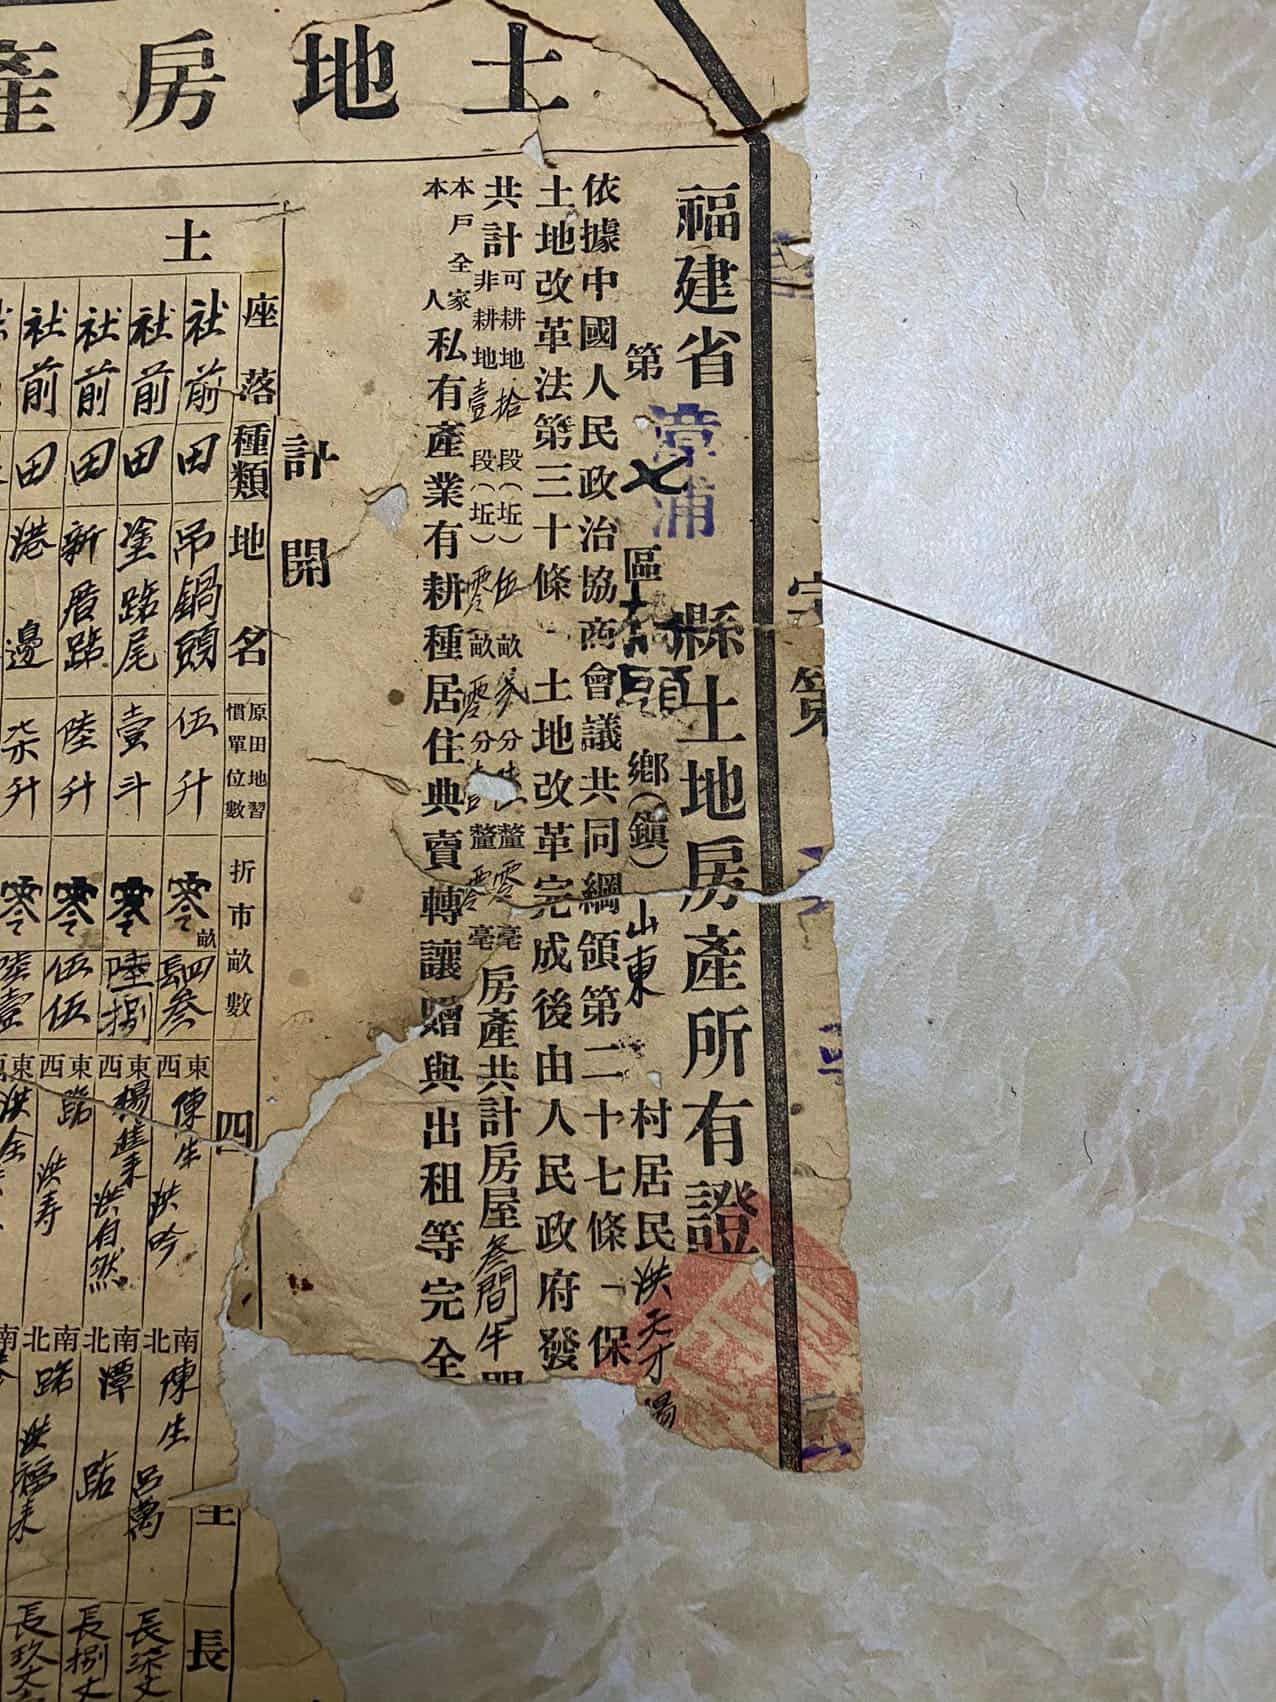 土地房產
福建省漳浦縣土地房產所有證
第七區橋頭鄉(鎮)山東村居民洪天才
依據中國人民政治協商會議共同綱領第二十七條「保
土地改革法第三十條「土地改革完成後由人民政府發
共計可耕地拾段(坵)伍畝 分 釐零毫
非耕地壹段(坵)零畝零分壹釐零毫
房產共計房屋叁間
本戶全家
本人
私有產業有耕種居住典賣轉讓贈與出租等完全
字第
計開
土
座落
種類
地名
原田地習慣單位數
折市畝數
四
長
社前
田
吊鍋頭
伍升
零畝四叁
東陳生
西洪吟
南陳生
北呂萬
社前
田
塗路尾
壹斗
零陸捌
東楊進來
西洪自然
南潭
北路
長柒丈
社前
田
新厝路
陸升
零伍伍
東路
西洪寿
南路
北洪福來
長捌丈
社前
田
港邊
柒升
零陸壹
東洪全
南
長玖丈